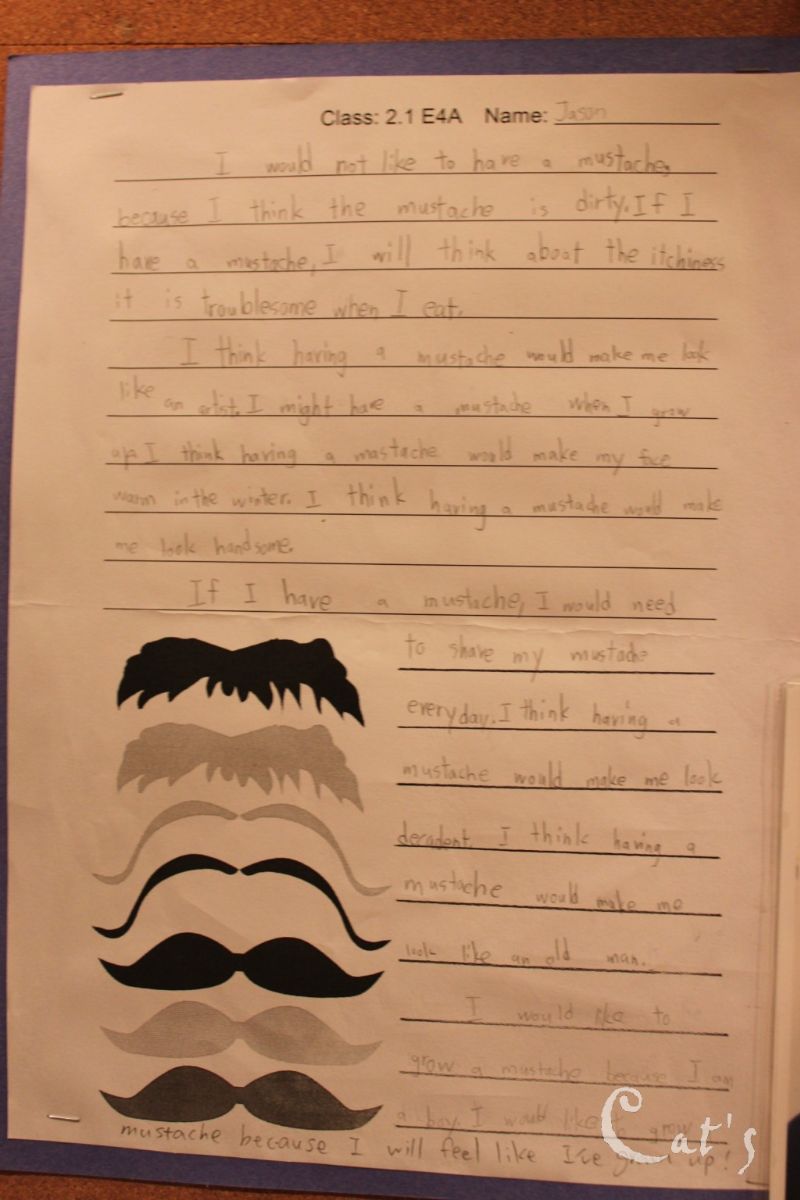 Class: 2.1 E4A Name: Jason
I would not like to have a mustache,
because I think the mustache is dirty. If I
have a mustache, I will think about the itchiness
it is troublesome when I eat.
I think having a mustache would make me look
like an artist. I might have a mustache when I grow
up. I think having a mastache would make my face
warm in the winter. I think having a mustache would make
me look handsome.
If I have a mustache, I would need
to shave my mustache
everyday. I think having a
mustache would make me look
decadent. I think having a
mustache would make me
look like an old man.
I would like to
grow a mustache because I am
a boy. I would like grow
mustache because I will feel like up!
Cat's